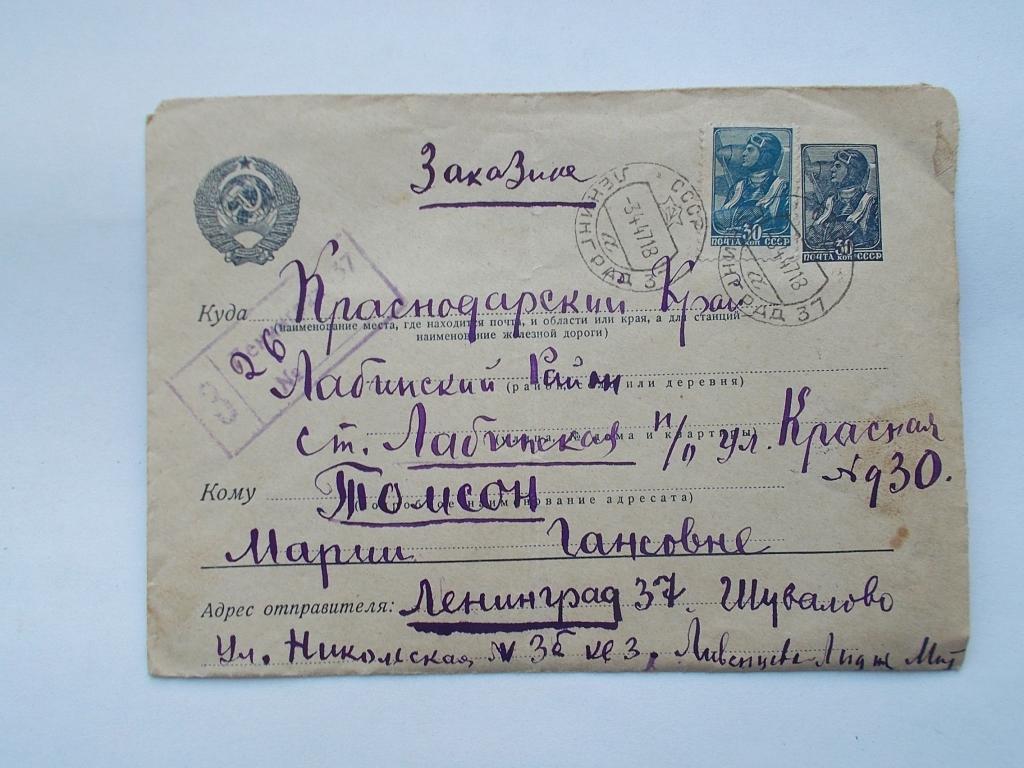 Заказное
ЛЕНИНГРАД 37
СССР
-3 4 47 18
ЛЕНИНГРАД 37
-3 4 47 18
30
ПОЧТА КОП СССР
30
ПОЧТА КОП СССР
З
37
№
26
Куда Краснодарский Край
(наименование места, где находится почта, и области или края, а для станций
наименование железной дороги)
Лабинский Район
или деревня)
ст. Лабинская п/о ул. Красная
и квартиры)
№ 930.
Кому Томсон
наименование адресата)
Марии Гансовне
Адрес отправителя: Ленинград 37. Шувалово
Ул. Никольская, № 3б кв 3.